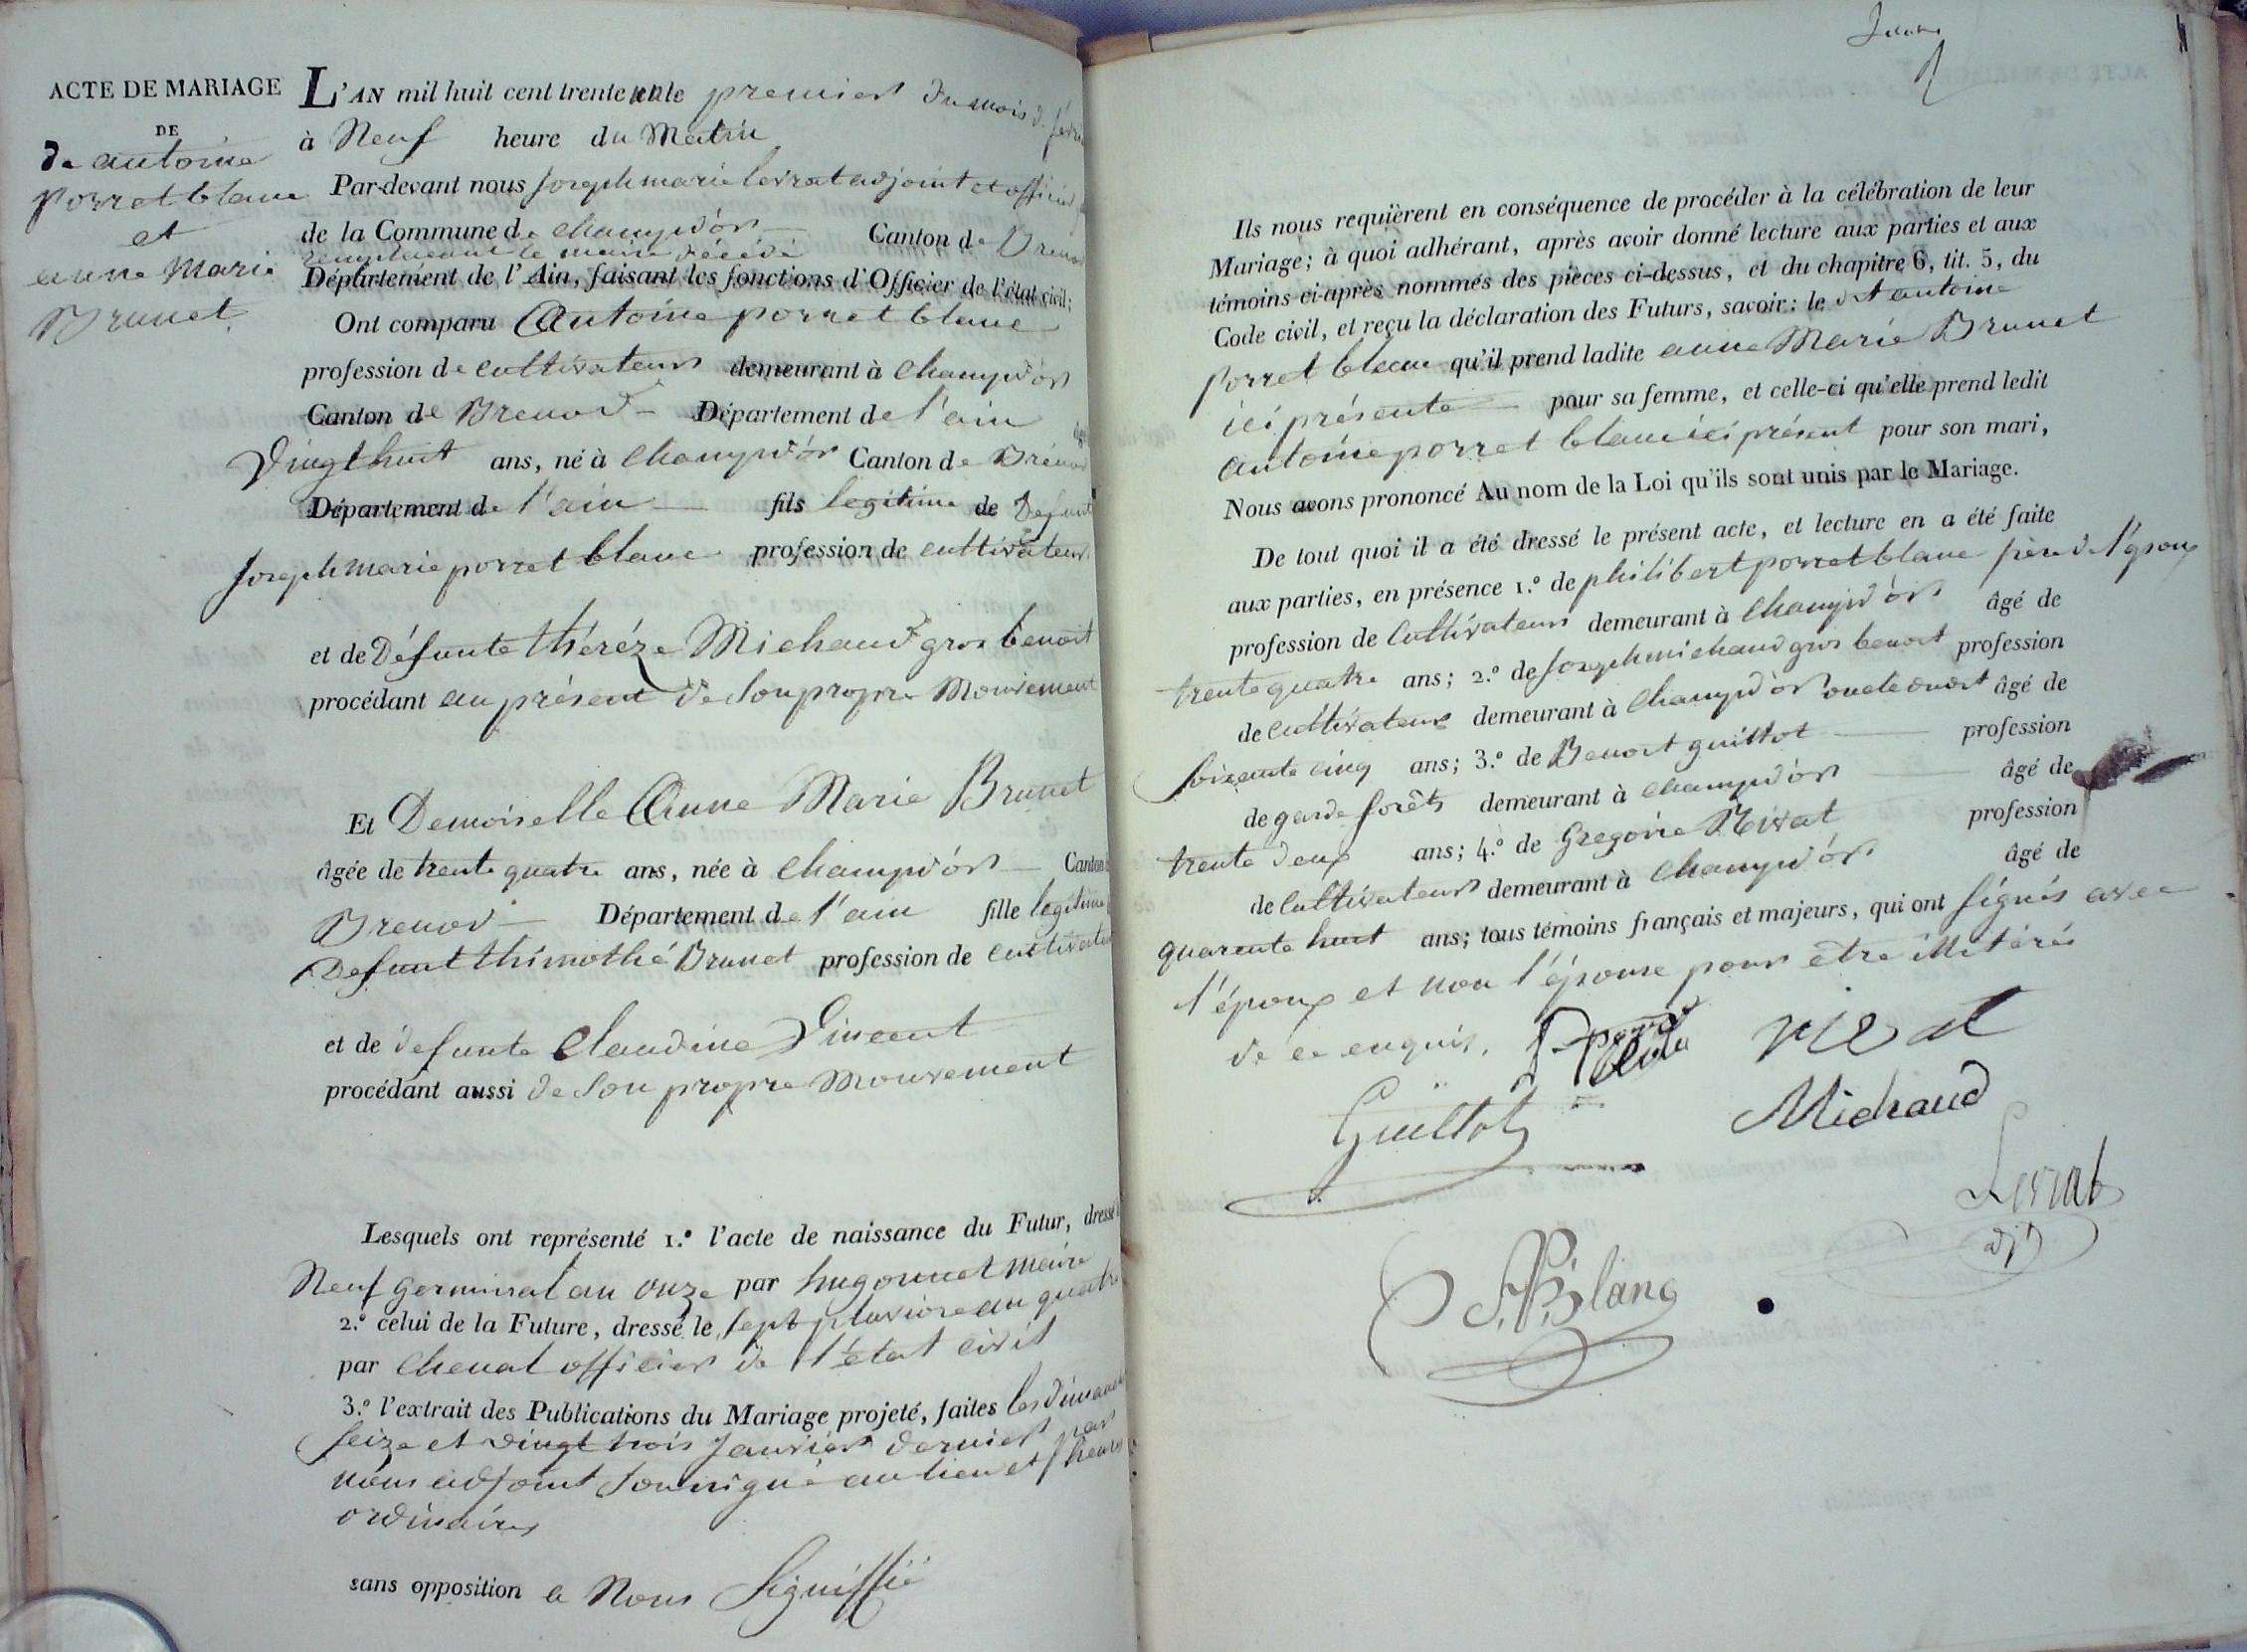 ACTE DE MARIAGE
DE
de antoine
porret blanc
et
anne Marie
Brunet
L'AN mil huit cent trente un le premier du mois de
à Neuf heure du Matin
Par-devant nous joseph marie levrat adjoint et officier
de la Commune de champd'or Canton de Brenod
remplacant le maire décédé
Département de l'Ain, faisant les fonctions d'Officier de l'état civil;
Ont comparu Antoine porret blanc
profession de cultivateur demeurant à champd'or
Canton de Brenod Département de l'ain
vingt huit ans, né à champd'or Canton de Brenod
Département de l'ain fils legitime de Defunt
joseph marie porret blanc profession de cultivateur
et de Défunte théréze Michaud gros benoit
procédant au présent de son propre Mouvement
Et Demoiselle Anne Marie Brunet
âgée de trente quatre ans, née à champd'or Canton
Brenod Département de l'ain fille legitime
Defunt thimothé Brunet profession de cultivateur
et de defunte Claudine Vincent
procédant aussi de son propre Mouvement
Lesquels ont représenté 1.° l'acte de naissance du Futur, dressé
Neuf germinal an onze par hugonnet maire
2.° celui de la Future, dressé le sept pluviose an quatre
par cheval officier de l'état civil
3.° l'extrait des Publications du Mariage projeté, faites les dimanches
seize et vingt trois janvier dernier par
nous adjoint soussigné au lieu et heures
ordinaires
sans opposition a Nous Signiffié
Ils nous requièrent en conséquence de procéder à la célébration de leur
Mariage; à quoi adhérant, après avoir donné lecture aux parties et aux
témoins ci-après nommés des pièces ci-dessus, et du chapitre 6, tit. 5, du
Code civil, et reçu la déclaration des Futurs, savoir: le dt antoine
porret blanc qu'il prend ladite anne Marie Brunet
ici présente pour sa femme, et celle-ci qu'elle prend ledit
antoine porret blanc ici présent pour son mari,
Nous avons prononcé Au nom de la Loi qu'ils sont unis par le Mariage.
De tout quoi il a été dressé le présent acte, et lecture en a été faite
aux parties, en présence 1.° de philibert porret blanc frère de l'époux
profession de cultivateur demeurant à champd'or âgé de
trente quatre ans; 2.° de joseph michaud gros benoit profession
de cultivateur demeurant à champd'or oncle âgé de
soixante cinq ans; 3.° de Benoit guillot profession
de garde forêts demeurant à champd'or âgé de
trente deux ans; 4.° de Gregoire Rivat profession
de cultivateur demeurant à champd'or âgé de
quarente huit ans; tous témoins français et majeurs, qui ont signés avec
l'époux et non l'épouse pour être illitérés
de ce enquis.
rivat
Guillot
Michaud
Levrat
adjt
Blanc